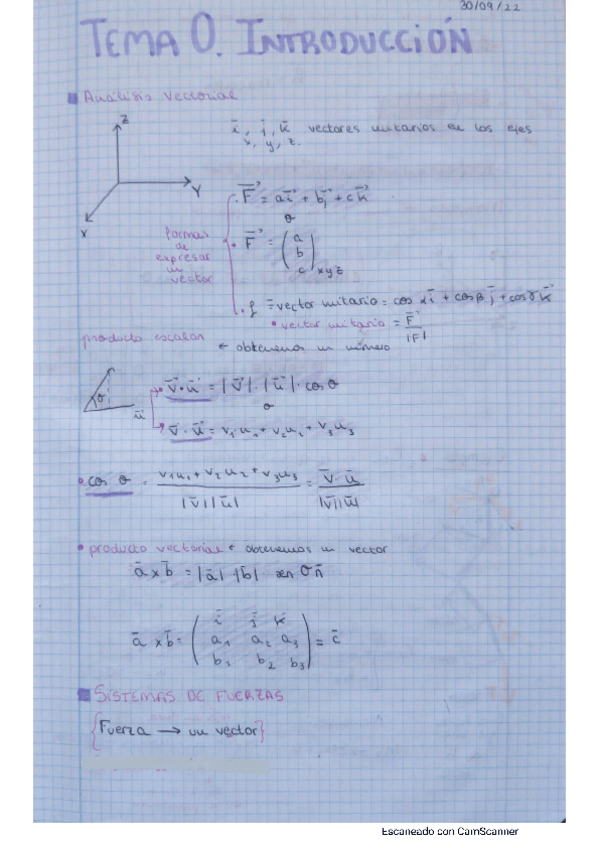 30/09/22
TEMA 0. INTRODUCCIÓN
Análisis vectorial
z
y
x
i, j, k vectores unitarios en los ejes
x, y, z.
formas
de
expresar
un
vector
F = ai + bj + ck
o
F = (a
b
c) xyz
f = vector unitario = cos αi + cosβ j + cosγ k
vector unitario = F / |F|
producto escalar ← obtenemos un número
θ
u
v·u = |v|·|u|·cos θ
o
v·u = v1·u1 + v2u2 + v3u3
cos θ = v1u1 + v2u2 + v3u3 / |v||u| = v·u / |v||u|
producto vectorial ← obtenemos un vector
a x b = |a|·|b| sen θ n
a x b = (i j k
a1 a2 a3
b1 b2 b3) = c
SISTEMAS DE FUERZAS
{Fuerza → un vector}
Escaneado con CamScanner